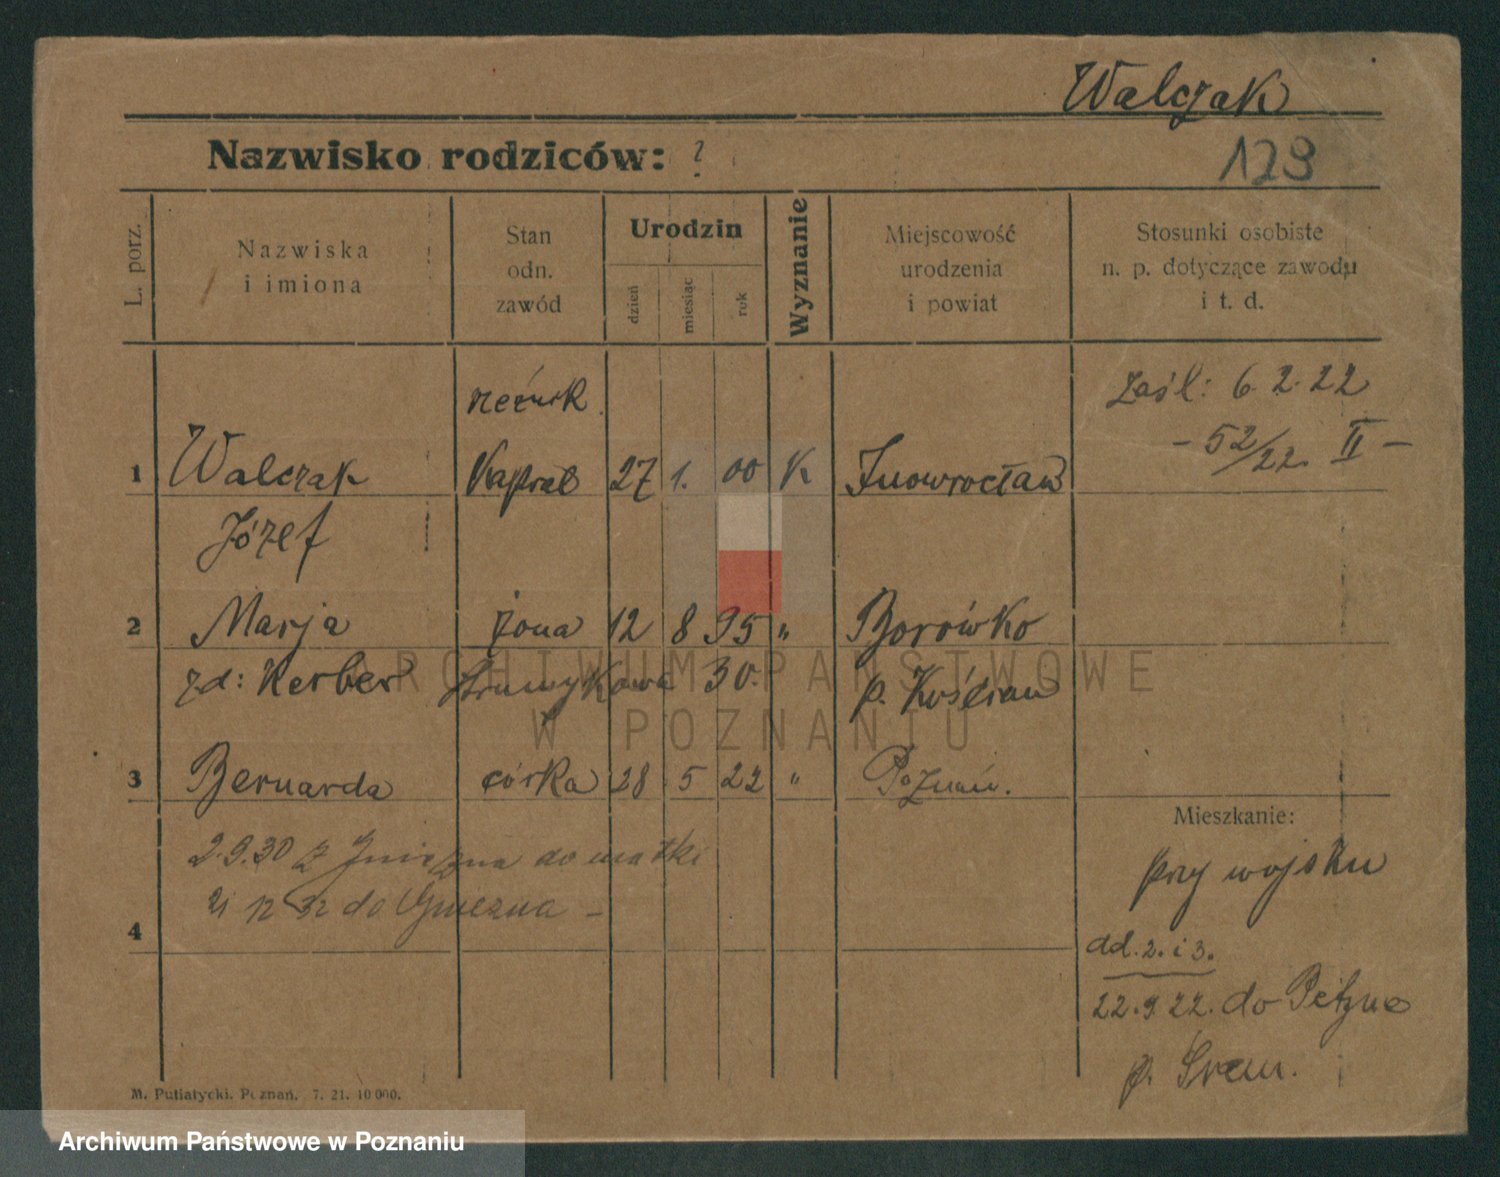 Walczak
Nazwisko rodziców: ?
129
L. porz.
Nazwiska
i imiona
Stan
odn.
zawód
Urodzin
dzień
miesiąc
rok
Wyznanie
Miejscowość
urodzenia
i powiat
Stosunki osobiste
n. p. dotyczące zawodu
i t. d.
rzeźnik
zaśl: 6. 2. 22
- 52/22. II -
1 Walczak Kapral 27 1. 00 K Inowrocław
Józef
2 Marja żona 12 8 95 " Borówko
zd: Kerber 30. p. Kościan
ARCHIWUM PAŃSTWOWE
W POZNANIU
3 Bernarda córka 28 5 22 " Poznań.
2.9.30 z Gniezna do matki
21 12 32 do Gniezna -
4
Mieszkanie:
przy wojsku
dd. 2. i 3.
22. 9. 22. do
p. Śrem.
M. Putiatycki. Poznań. 7. 21. 10 000.
Archiwum Państwowe w Poznaniu